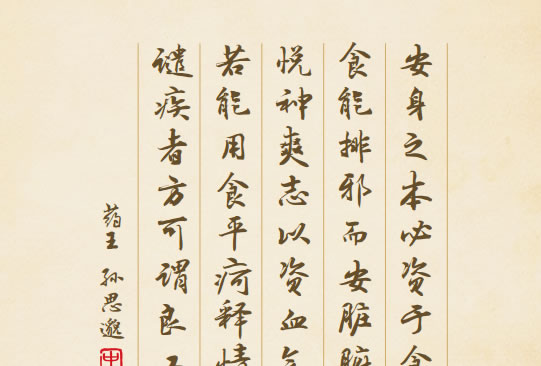 安身之本必资于食
食能排邪而安脏腑
悦神爽志以资血气
若能用食平疴释情
谴疾者方可谓良工
药王 孙思邈